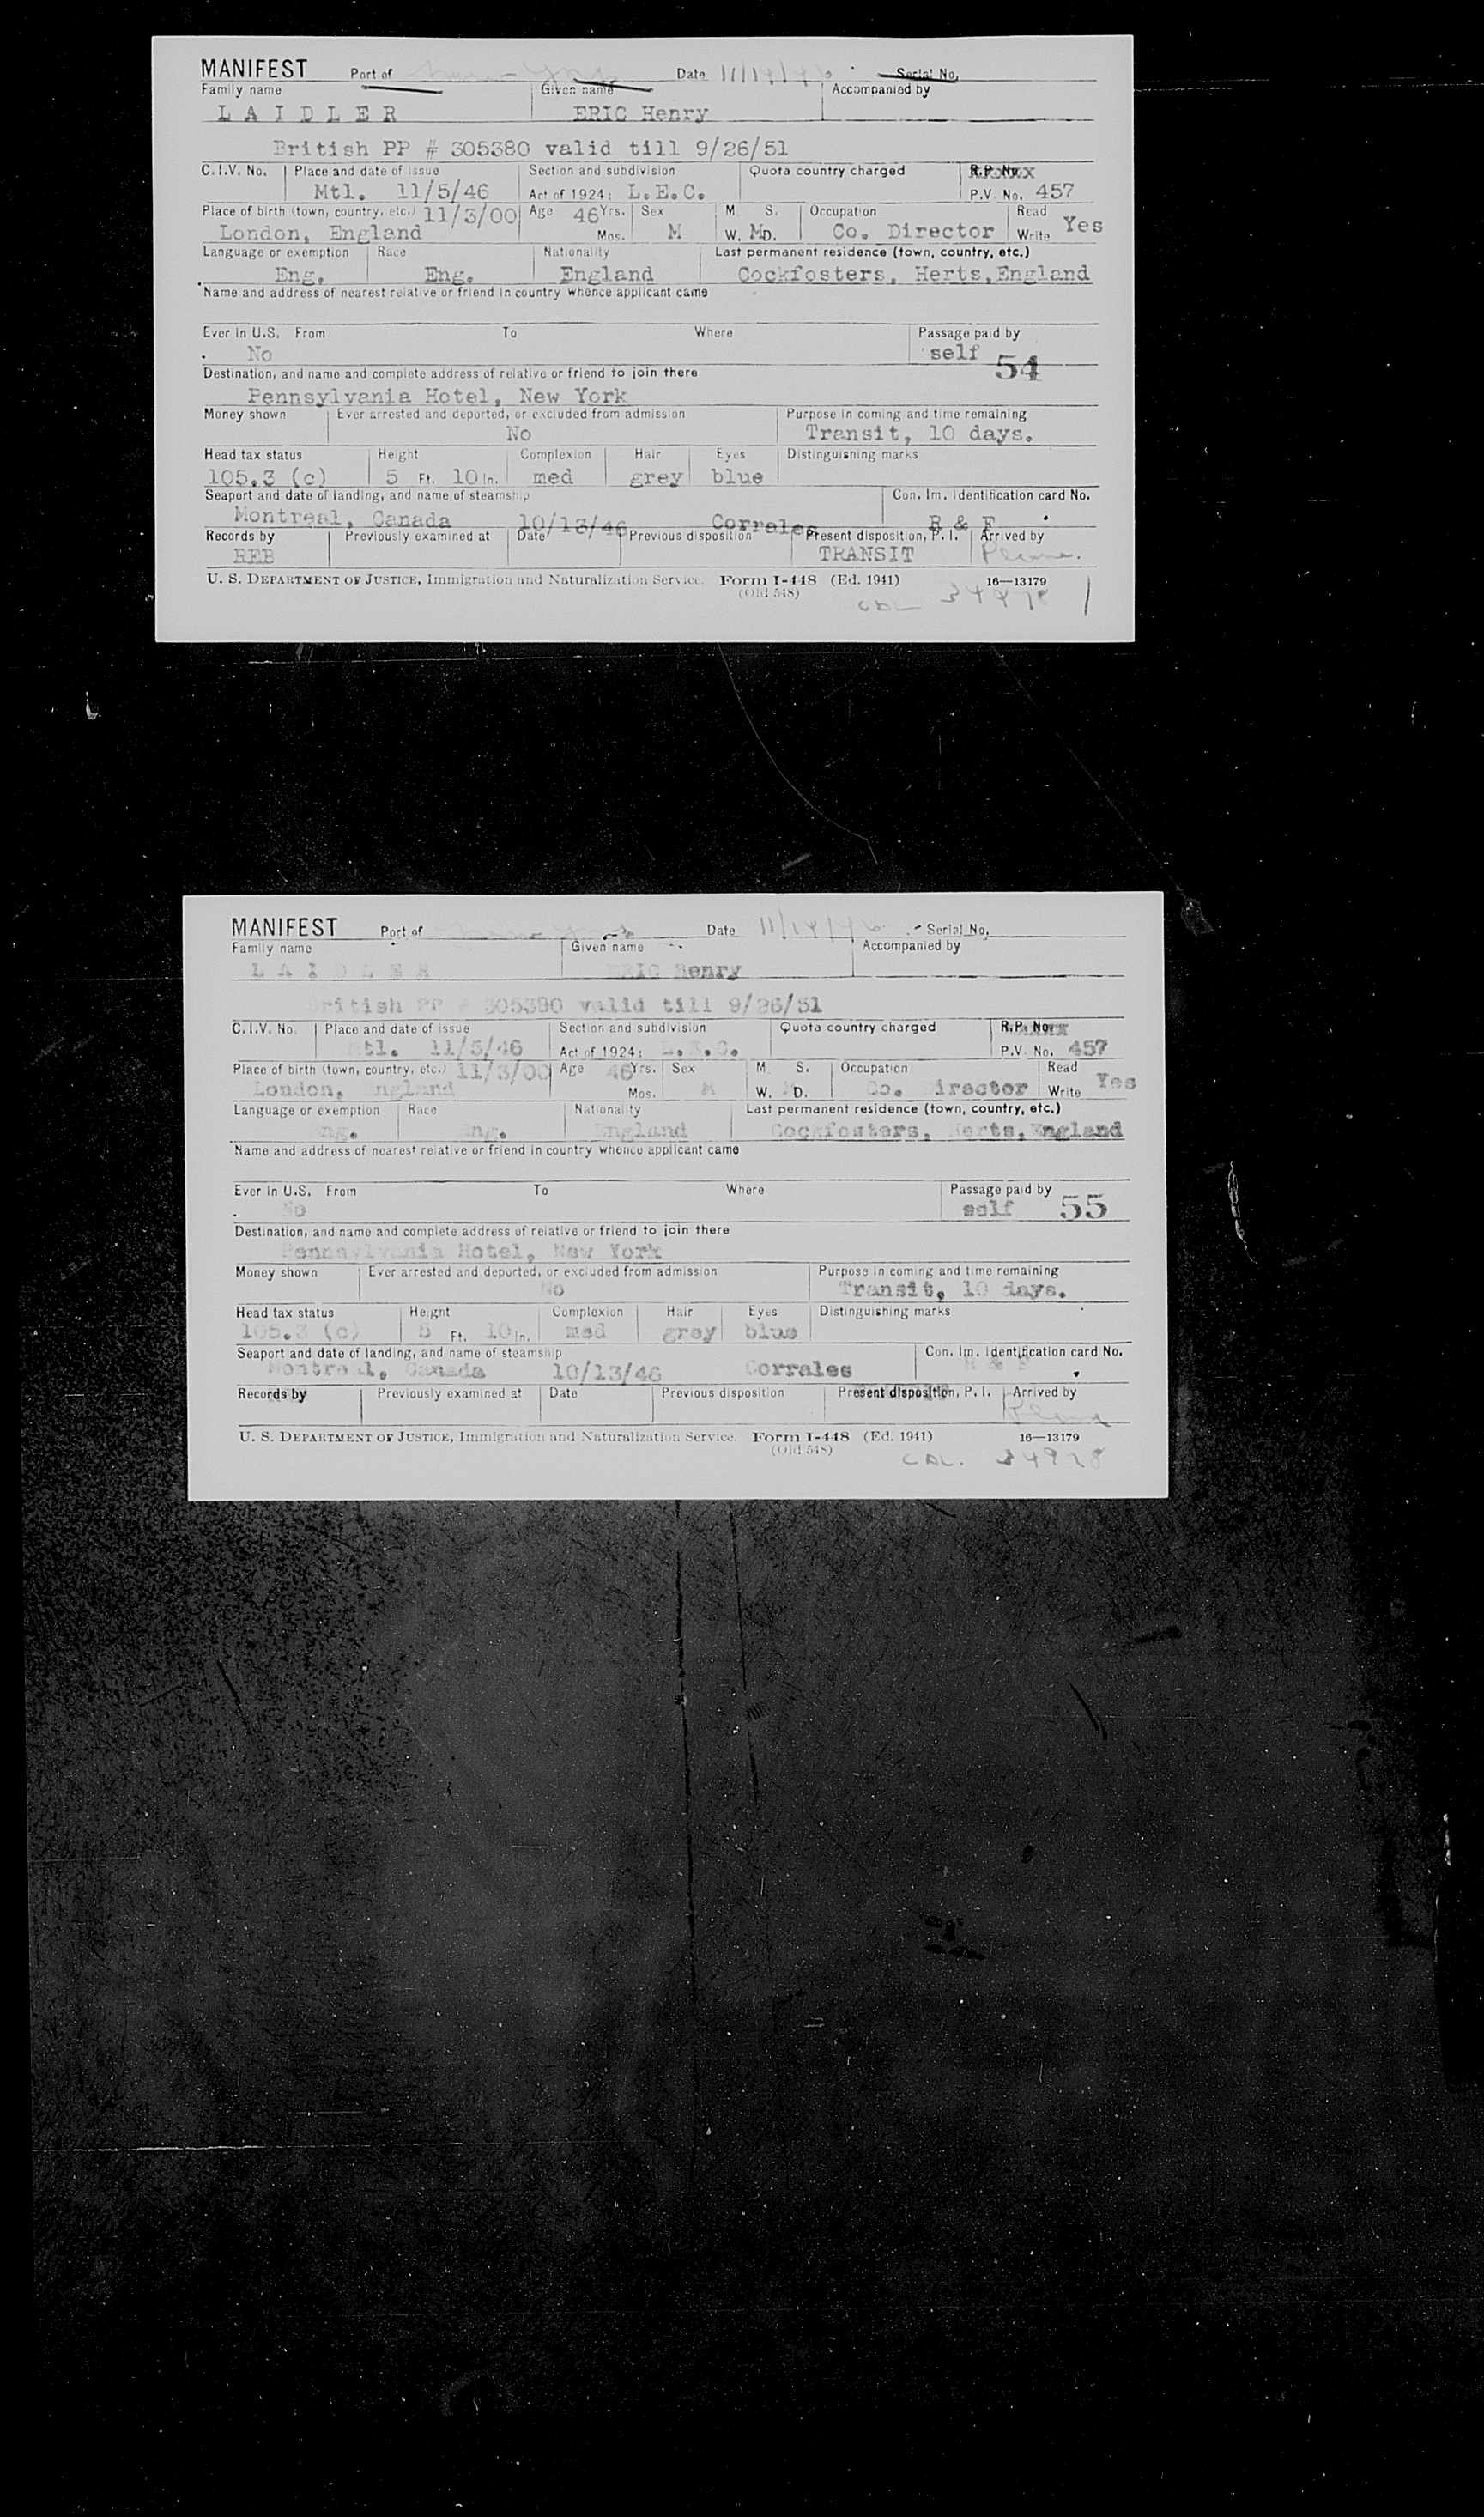 MANIFEST Port of New York Date 11/14/46 Serial No.
Family name Given name Accompanied by
L A I D L E R ERIC Henry
British PP # 305380 valid till 9/26/51
C.I.V. No. Place and date of issue Section and subdivision Quota country charged R.P. No.
Mtl. 11/5/46 Act of 1924: L.E.C. P.V. No. 457
Place of birth (town, country, etc.) 11/3/00 Age 46 Yrs. Sex M. S. Occupation Read Yes
London, England Mos. M W. MD. Co. Director Write
Language or exemption Race Nationality Last permanent residence (town, country, etc.)
Eng. Eng. England Cockfosters, Herts, England
Name and address of nearest relative or friend in country whence applicant came
Ever in U.S. From To Where Passage paid by
No self 54
Destination, and name and complete address of relative or friend to join there
Pennsylvania Hotel, New York
Money shown Ever arrested and deported, or excluded from admission Purpose in coming and time remaining
No Transit, 10 days.
Head tax status Height Complexion Hair Eyes Distinguishing marks
105.3 (c) 5 Ft. 10 In. med grey blue
Seaport and date of landing, and name of steamship Con. Im. Identification card No.
Montreal, Canada 10/13/46 Corrales R & F
Records by Previously examined at Date Previous disposition Present disposition, P. I. Arrived by
REB TRANSIT Plane.
U. S. DEPARTMENT OF JUSTICE, Immigration and Naturalization Service. Form I-448 (Ed. 1941) 16—13179
(Old 548)
MANIFEST Port of New York Date 11/14/46 Serial No.
Family name Given name Accompanied by
L A I D L E R ERIC Henry
British PP # 305380 valid till 9/26/51
C.I.V. No. Place and date of issue Section and subdivision Quota country charged R.P. No.
Mtl. 11/5/46 Act of 1924: L.E.C. P.V. No. 457
Place of birth (town, country, etc.) 11/3/00 Age 46 Yrs. Sex M. S. Occupation Read Yes
London, England Mos. M W. D. Co. Director Write
Language or exemption Race Nationality Last permanent residence (town, country, etc.)
Eng. Eng. England Cockfosters, Herts, England
Name and address of nearest relative or friend in country whence applicant came
Ever in U.S. From To Where Passage paid by
No self 55
Destination, and name and complete address of relative or friend to join there
Pennsylvania Hotel, New York
Money shown Ever arrested and deported, or excluded from admission Purpose in coming and time remaining
No Transit, 10 days.
Head tax status Height Complexion Hair Eyes Distinguishing marks
105.3 (c) 5 Ft. 10 In. med grey blue
Seaport and date of landing, and name of steamship Con. Im. Identification card No.
Montreal, Canada 10/13/46 Corrales R & F
Records by Previously examined at Date Previous disposition Present disposition, P. I. Arrived by
Plane
U. S. DEPARTMENT OF JUSTICE, Immigration and Naturalization Service. Form I-448 (Ed. 1941) 16—13179
(Old 548)